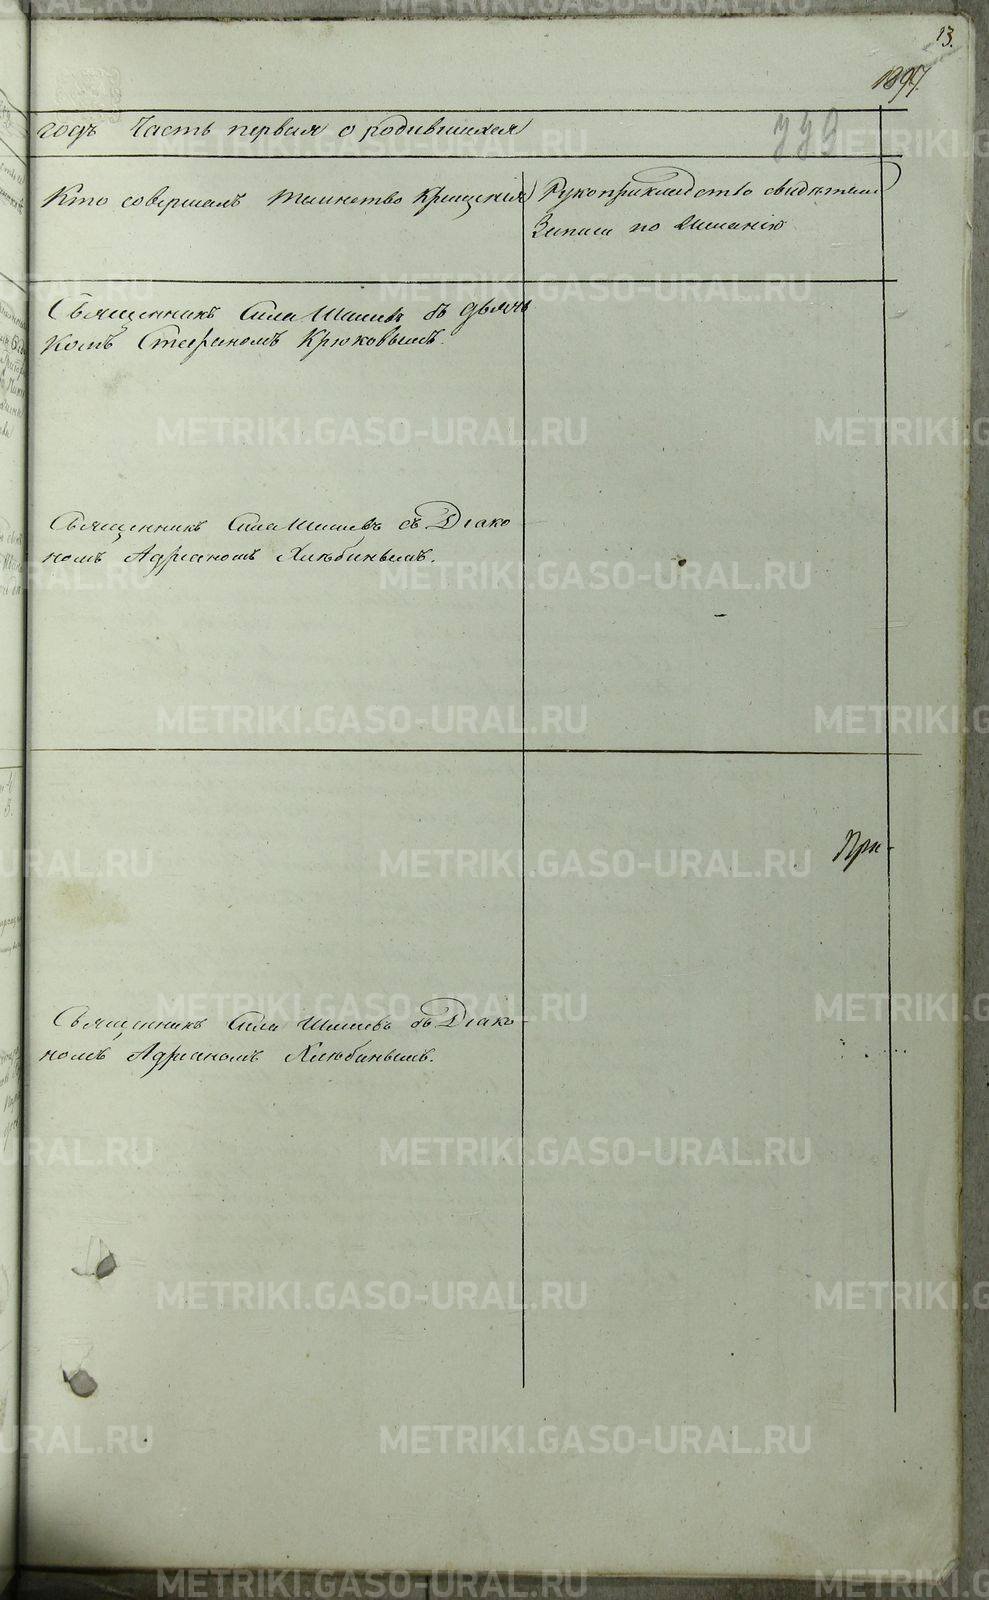 13.
1897.
годъ Часть первая о родившихся
Кто совершалъ таинство крещенія
Рукоприкладство свидѣтелей
записи по желанію
Священникъ Сила съ дьяч
комъ Стефаномъ Крюковымъ.
Священникъ Сила съ Діако
номъ Адріаномъ Хлюбинымъ.
При-
Священникъ Сила съ Діако-
номъ Адріаномъ Хлюбинымъ.
METRIKI.GASO-URAL.RU